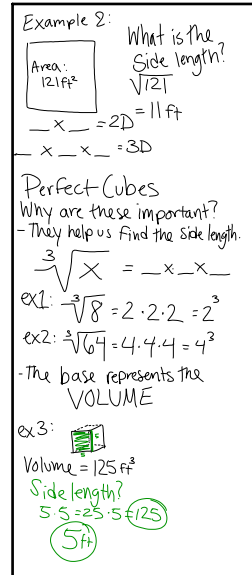 Example 2:
What is the
Side length?
Area:
121ft²
√121
= 11 ft
_ x _ = 2D
_ x _ x _ = 3D
Perfect Cubes
Why are these important?
- They help us find the side length.
³√x = _ x _ x _
ex1: ³√8 = 2·2·2 = 2³
ex2: ³√64 = 4·4·4 = 4³
- The base represents the
VOLUME
ex3:
Volume = 125 ft³
Side length?
5·5=25·5=125
5ft